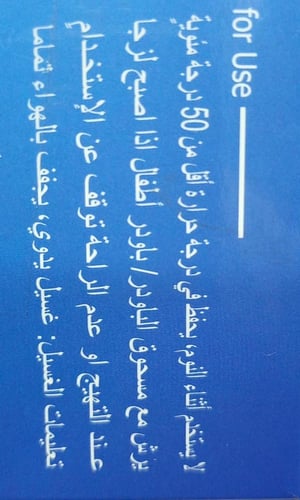 for Use
لا يستخدم أثناء النوم، يحفظ في درجة حرارة أقل من 50 درجة مئوية
يرش مع مسحوق الباودر/ باودر أطفال اذا اصبح لزجا
عند التهيج او عدم الراحة توقف عن الإستخدام
تعليمات الغسيل: غسيل يدوي، يجفف بالهواء تماما